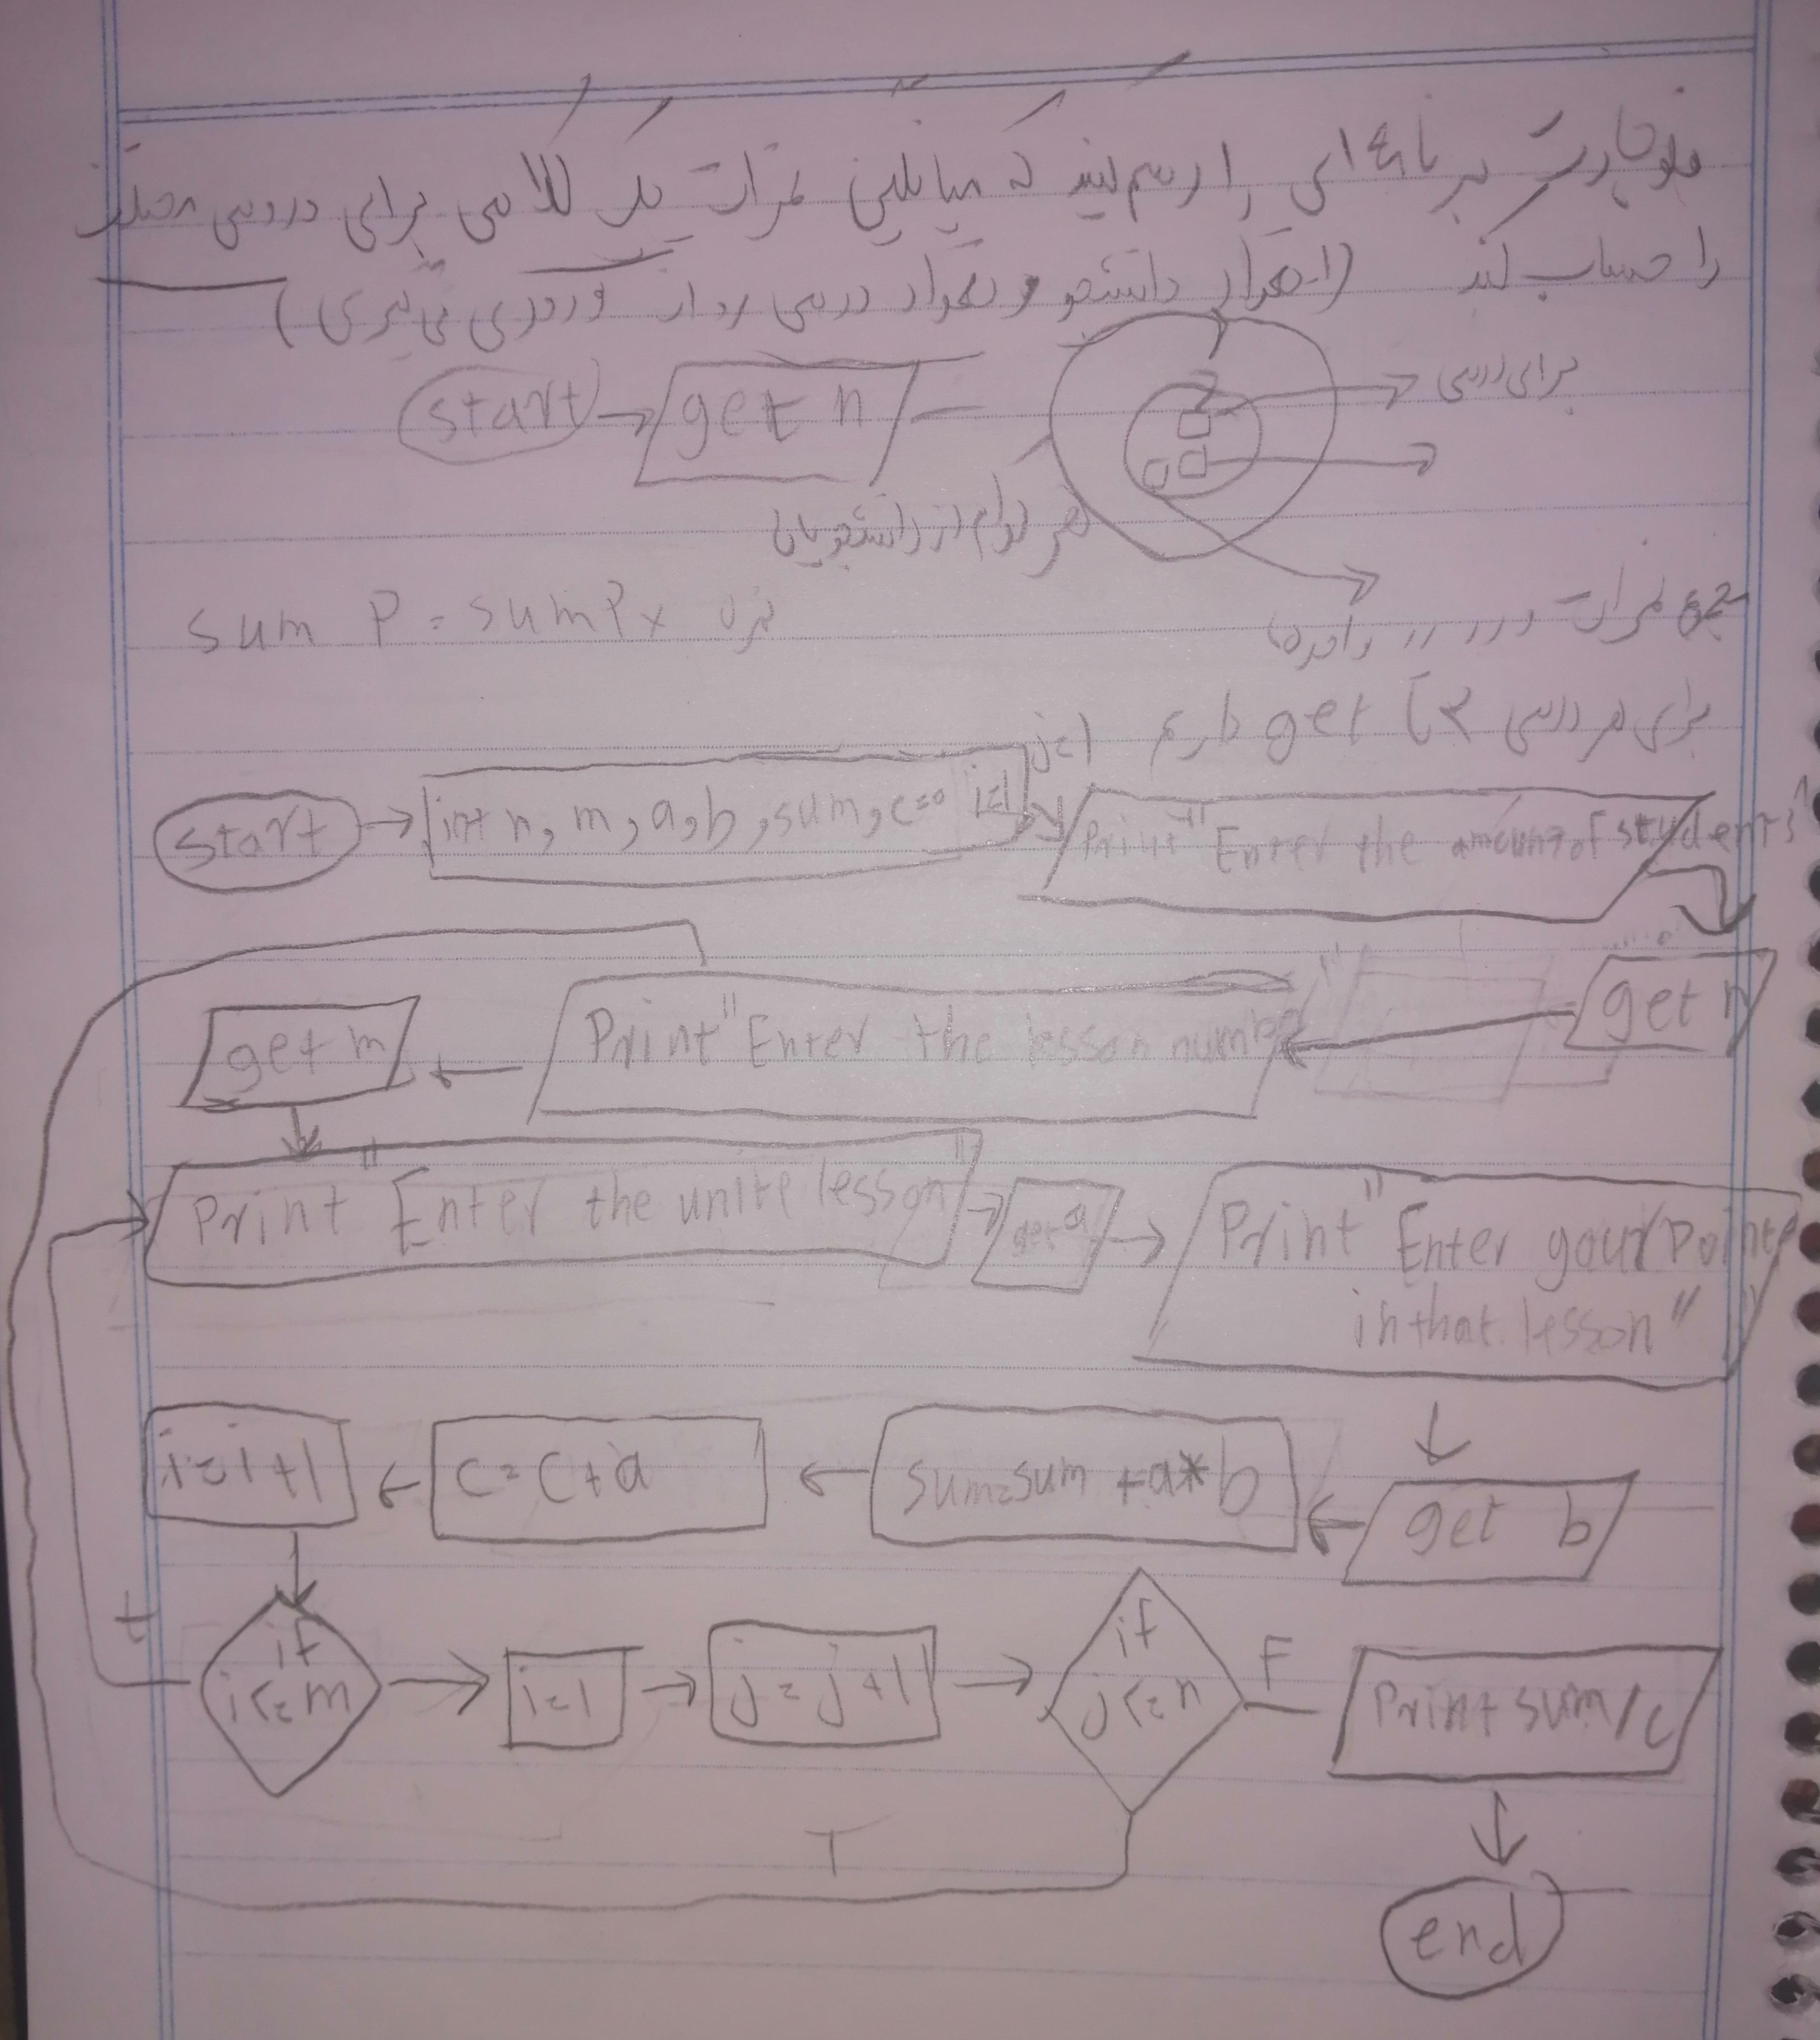 فلوچارت برنامه ای را رسم کنید که میانگین نمرات یک کلاس برای دروس مختلف
را حساب کند (تعداد دانشجو و تعداد درس رو از ورودی می گیری)
start get n برای درس
هر کدام از دانشجویان
sum P = sum P x نمره
جمع نمرات و ر ر واحدها
برای هر درس ۲ تا get داریم
j=1
start int n, m, a, b, sum, c=0 i=1 Print "Enter the amount of students"
get n
Print "Enter the lesson number"
get m
Print "Enter the unite lesson" get a Print "Enter your Point
in that lesson"
get b
sum=sum+a*b
c=c+a
i=i+1
t if
i<=m i=1 j=j+1 if
j<=n F Print sum/c
T
end